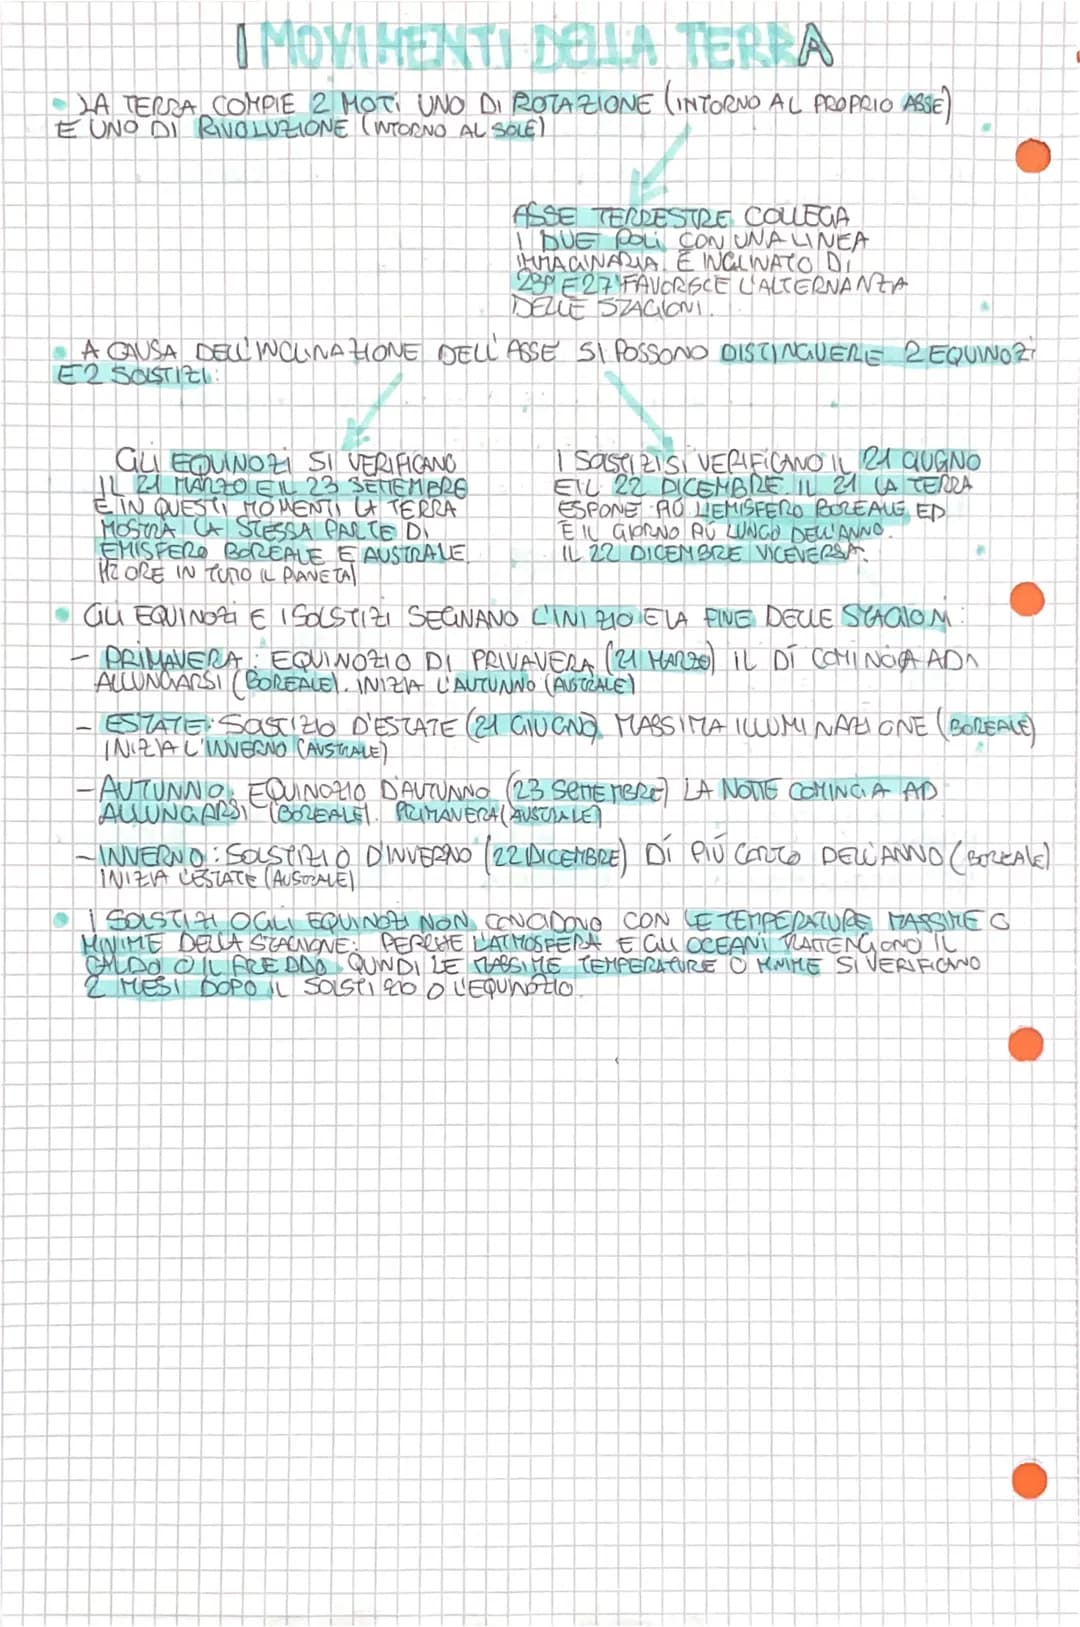 I MOVIMENTI DELLA TERRA
• LA TERRA COMPIE 2 MOTI UNO DI ROTAZIONE (INTORNO AL PROPRIO ASSE)
E UNO DI RIVOLUZIONE (INTORNO AL SOLE)
ASSE TERRESTRE COLLEGA
I DUE POLI CON UNA LINEA
IMMAGINARIA. E INCLINATO DI
23° E 27' FAVORISCE L'ALTERNANZA
DELLE STAGIONI.
• A CAUSA DELL'INCLINAZIONE DELL'ASSE SI POSSONO DISTINGUERE 2 EQUINOZI
E 2 SOLSTIZI:
GLI EQUINOZI SI VERIFICANO
IL 21 MARZO E IL 23 SETTEMBRE
E IN QUESTI MOMENTI LA TERRA
MOSTRA LA STESSA PARTE DI
EMISFERO BOREALE E AUSTRALE.
12 ORE IN TUTTO IL PIANETA)
I SOLSTIZI SI VERIFICANO IL 21 GIUGNO
E IL 22 DICEMBRE. IL 21 LA TERRA
ESPONE PIÙ L'EMISFERO BOREALE ED
E IL GIORNO PIÙ LUNGO DELL'ANNO.
IL 22 DICEMBRE VICEVERSA.
• GLI EQUINOZI E I SOLSTIZI SEGNANO L'INIZIO E LA FINE DELLE STAGIONI:
- PRIMAVERA: EQUINOZIO DI PRIVAVERA (21 MARZO) IL DÌ COMINCIA AD
ALLUNGARSI (BOREALE). INIZIA L'AUTUNNO (AUSTRALE)
- ESTATE: SOLSTIZIO D'ESTATE (21 GIUGNO) MASSIMA ILLUMINAZIONE (BOREALE)
INIZIA L'INVERNO (AUSTRALE)
- AUTUNNO: EQUINOZIO D'AUTUNNO (23 SETTEMBRE) LA NOTTE COMINCIA AD
ALLUNGARSI (BOREALE). PRIMAVERA (AUSTRALE)
- INVERNO: SOLSTIZIO D'INVERNO (22 DICEMBRE) DÍ PIÚ CORTO DELL'ANNO (BOREALE)
INIZIA L'ESTATE (AUSTRALE)
• I SOLSTIZI O GLI EQUINOZI NON CONCIDONO CON LE TEMPERATURE MASSIME O
MINIME DELLA STAGIONE: PERCHE L'ATMOSFERA E GLI OCEANI TRATTENGONO IL
CALDO O IL FREDDO QUNDI LE MASSIME TEMPERATURE O MINIME SI VERIFICANO
2 MESI DOPO IL SOLSTIZIO O L'EQUINOZIO.